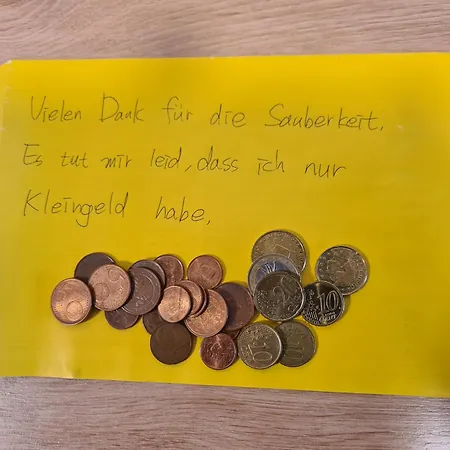 Vielen Dank für die Sauberkeit.
Es tut mir leid, dass ich nur
Kleingeld habe.
10
10